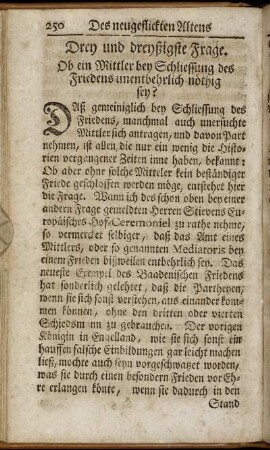 250 Des neugeflickten Altens
Drey und dreyßigste Frage.
Ob ein Mittler bey Schliessung des
Friedens unentbehrlich nöthig
sey?
Daß gemeiniglich bey Schliessung des
Friedens, manchmal auch unersuchte
Mittler sich antragen, und davon Part
nehmen, ist allen die nur ein wenig die Histo-
rien vergangener Zeiten inne haben, bekannt:
Ob aber ohne solche Mitteler kein beständiger
Friede geschlossen werden möge, entstehet hier
die Frage. Wann ich des schon oben bey einer
andern Frage gemeldten Herren Stievens Eu-
ropäisches Hof-Ceremoniel zu rathe nehme,
so vermercket selbiger, daß das Amt eines
Mittlers, oder so genannten Mediatoris bey
einem Frieden bißweilen entbehrlich sey. Das
neueste Exempel des Baadenischen Friedens
hat sonderlich gelehret, daß die Partheyen,
wenn sie sich sonst verstehen, aus einander kom-
men können, ohne den dritten oder vierten
Schiedsm nn zu gebrauchen. Der vorigen
Königin in Engelland, wie sie sich sonst ein
hauffen falsche Einbildungen gar leicht machen
ließ, mochte auch seyn vorgeschwatzet worden,
was sie durch einen besondern Frieden vor Eh-
re erlangen könte, wenn sie dadurch in den
Stand